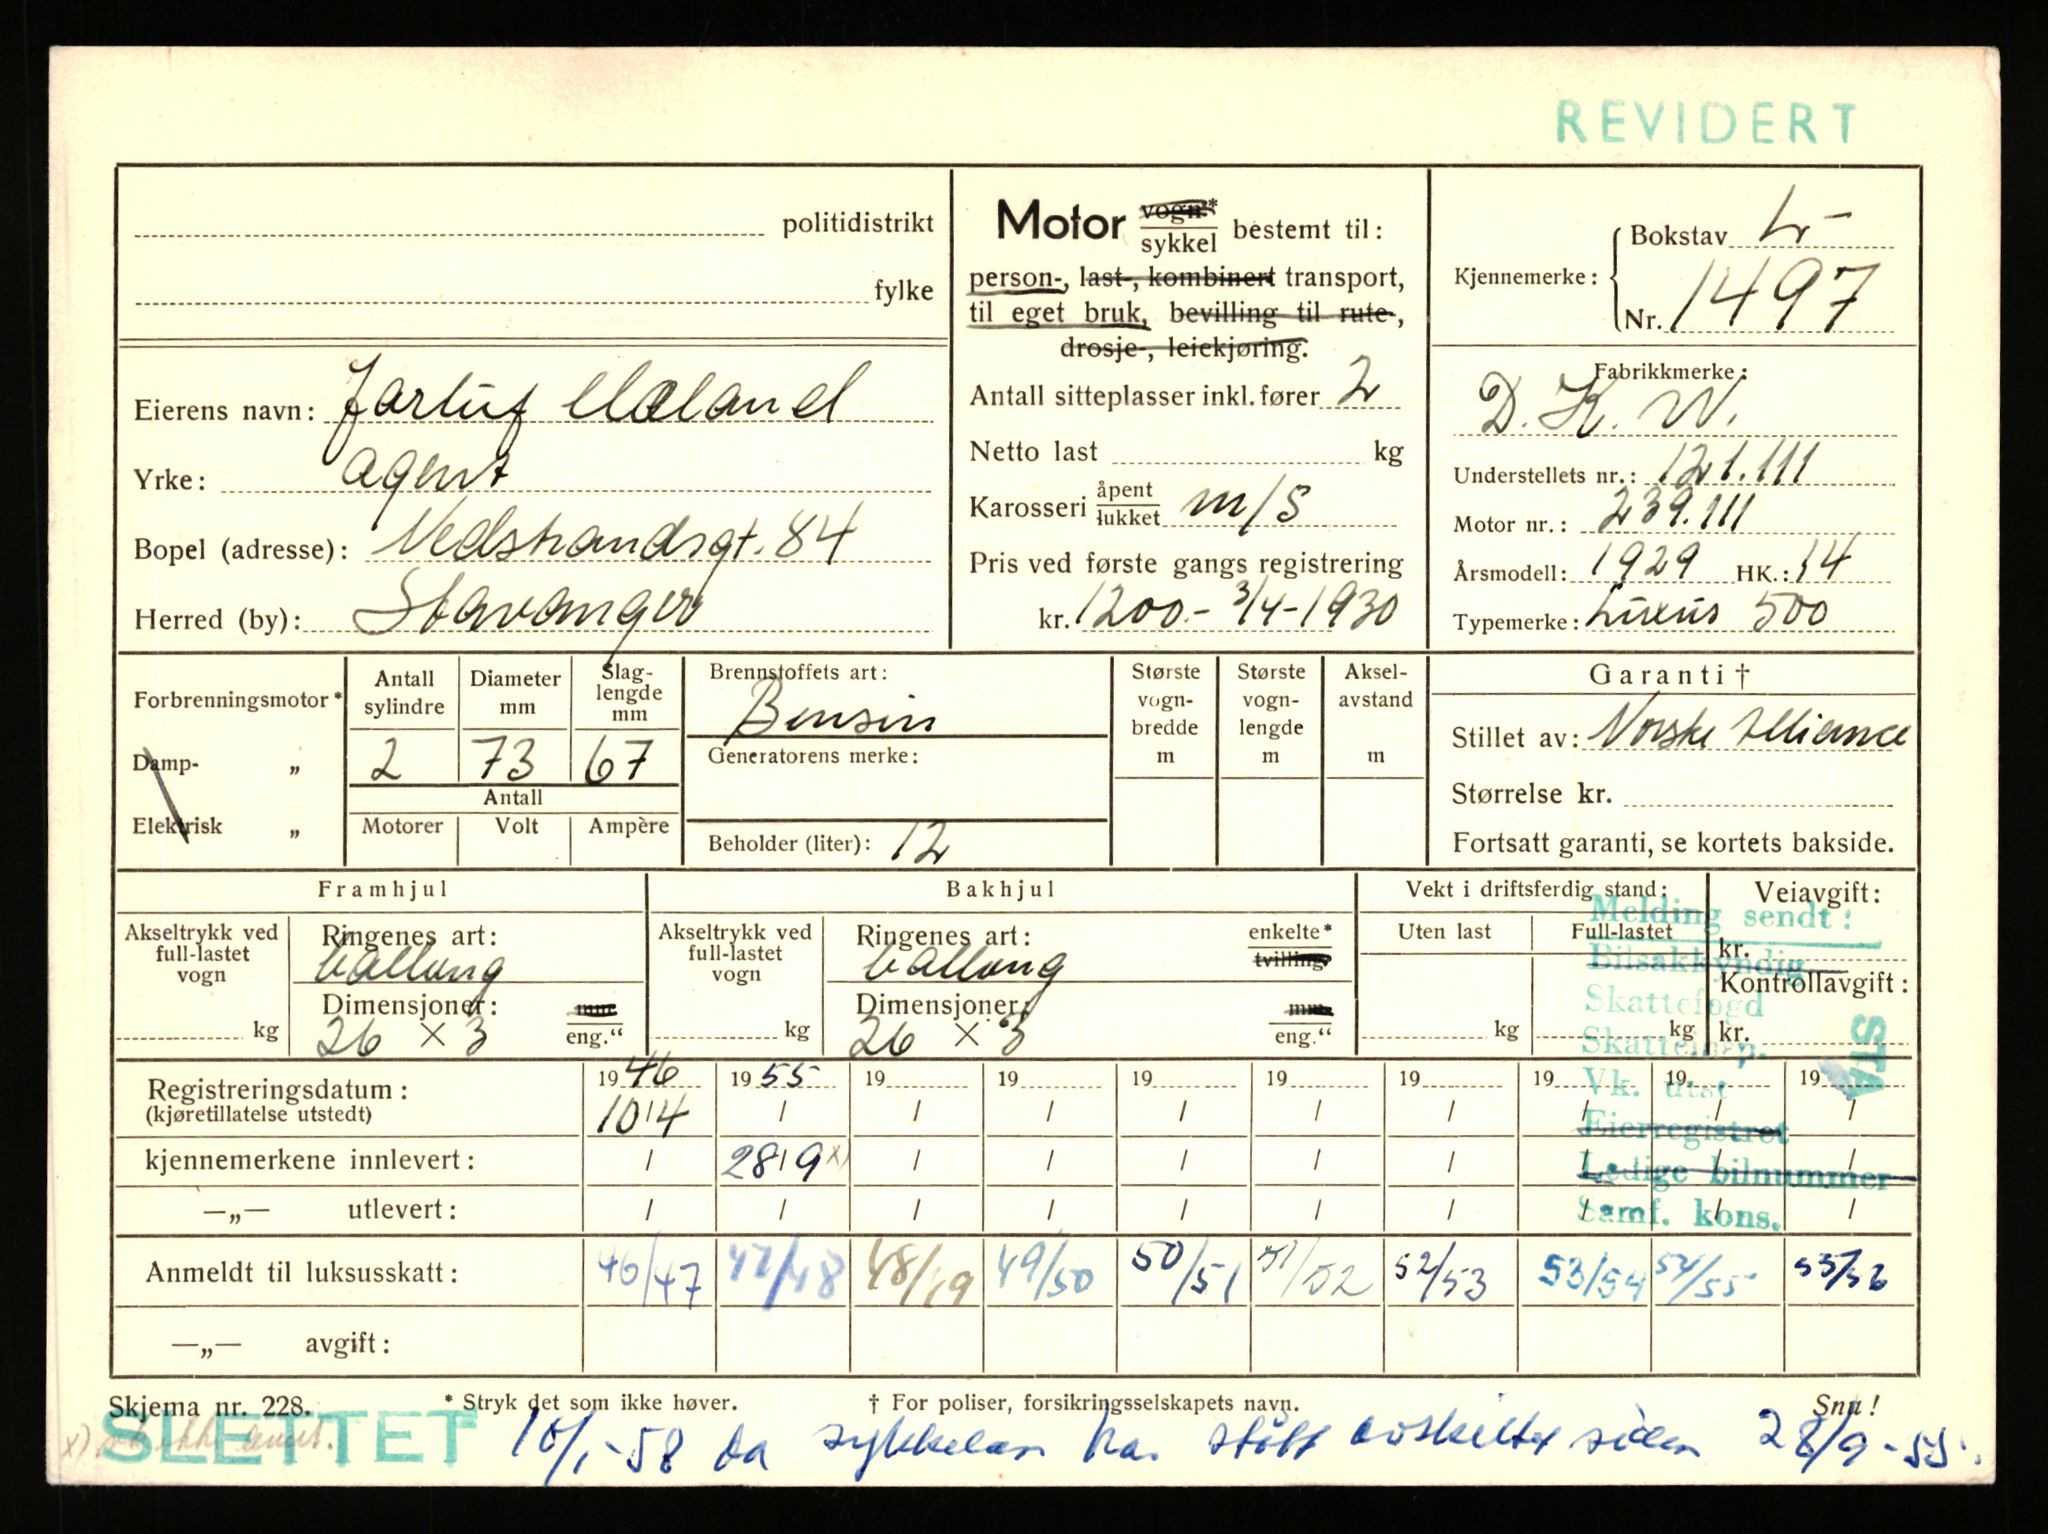 REVIDERT
politidistrikt
fylke
Eierens navn: Jarluf Mæland
Yrke: agent
Bopel (adresse): Nedstrandsgt. 84
Herred (by): Stavanger
Motor vogn* / sykkel bestemt til:
person-, last-, kombinert transport,
til eget bruk, bevilling til rute-,
drosje-, leiekjøring.
Antall sitteplasser inkl. fører 2
Netto last kg
Karosseri åpent / lukket m/S
Pris ved første gangs registrering
kr. 1200.- 3/4-1930
Kjennemerke: Bokstav L-
Nr. 1497
Fabrikkmerke:
D. K. W.
Understellets nr.: 121.111
Motor nr.: 239.111
Årsmodell: 1929 HK.: 14
Typemerke: Luxus 500
Forbrenningsmotor*
Damp- „
Elektrisk „
Antall sylindre 2
Diameter mm 73
Slag-lengde mm 67
Antall
Motorer Volt Ampère
Brennstoffets art:
Bensin
Generatorens merke:
Beholder (liter): 12
Største vogn-bredde m
Største vogn-lengde m
Aksel-avstand m
Garanti †
Stillet av: Norske Alliance
Størrelse kr.
Fortsatt garanti, se kortets bakside.
Framhjul
Akseltrykk ved full-lastet vogn
kg
Ringenes art:
ballong
Dimensjoner: mm / eng.“
26 × 3
Bakhjul
Akseltrykk ved full-lastet vogn
kg
Ringenes art: enkelte* / tvilling.
ballong
Dimensjoner: mm. / eng.“
26 × 3
Vekt i driftsferdig stand:
Uten last Full-lastet
kg kg
Veiavgift:
kr.
Kontrollavgift:
kr.
Melding sendt:
Bilsakkyndig
Skattefogd
Skatteinsp.
Vk. utst
Eierregistret
Ledige bilnummer
Samf. kons.
STA
Registreringsdatum: 1946 1955 19 19 19 19 19 19 19
(kjøretillatelse utstedt) 10/4 / / / / / / / / /
kjennemerkene innlevert: / 28/9 x) / / / / / / / /
—„— utlevert: / / / / / / / / / /
Anmeldt til luksusskatt: 46/47 47/48 48/49 49/50 50/51 51/52 52/53 53/54 54/55 55/56
—„— avgift:
Skjema nr. 228. * Stryk det som ikke høver. † For poliser, forsikringsselskapets navn. Snu!
SLETTET 10/1-58 da sykkelen har stått avskiltet siden 28/9-55.
x) ikke